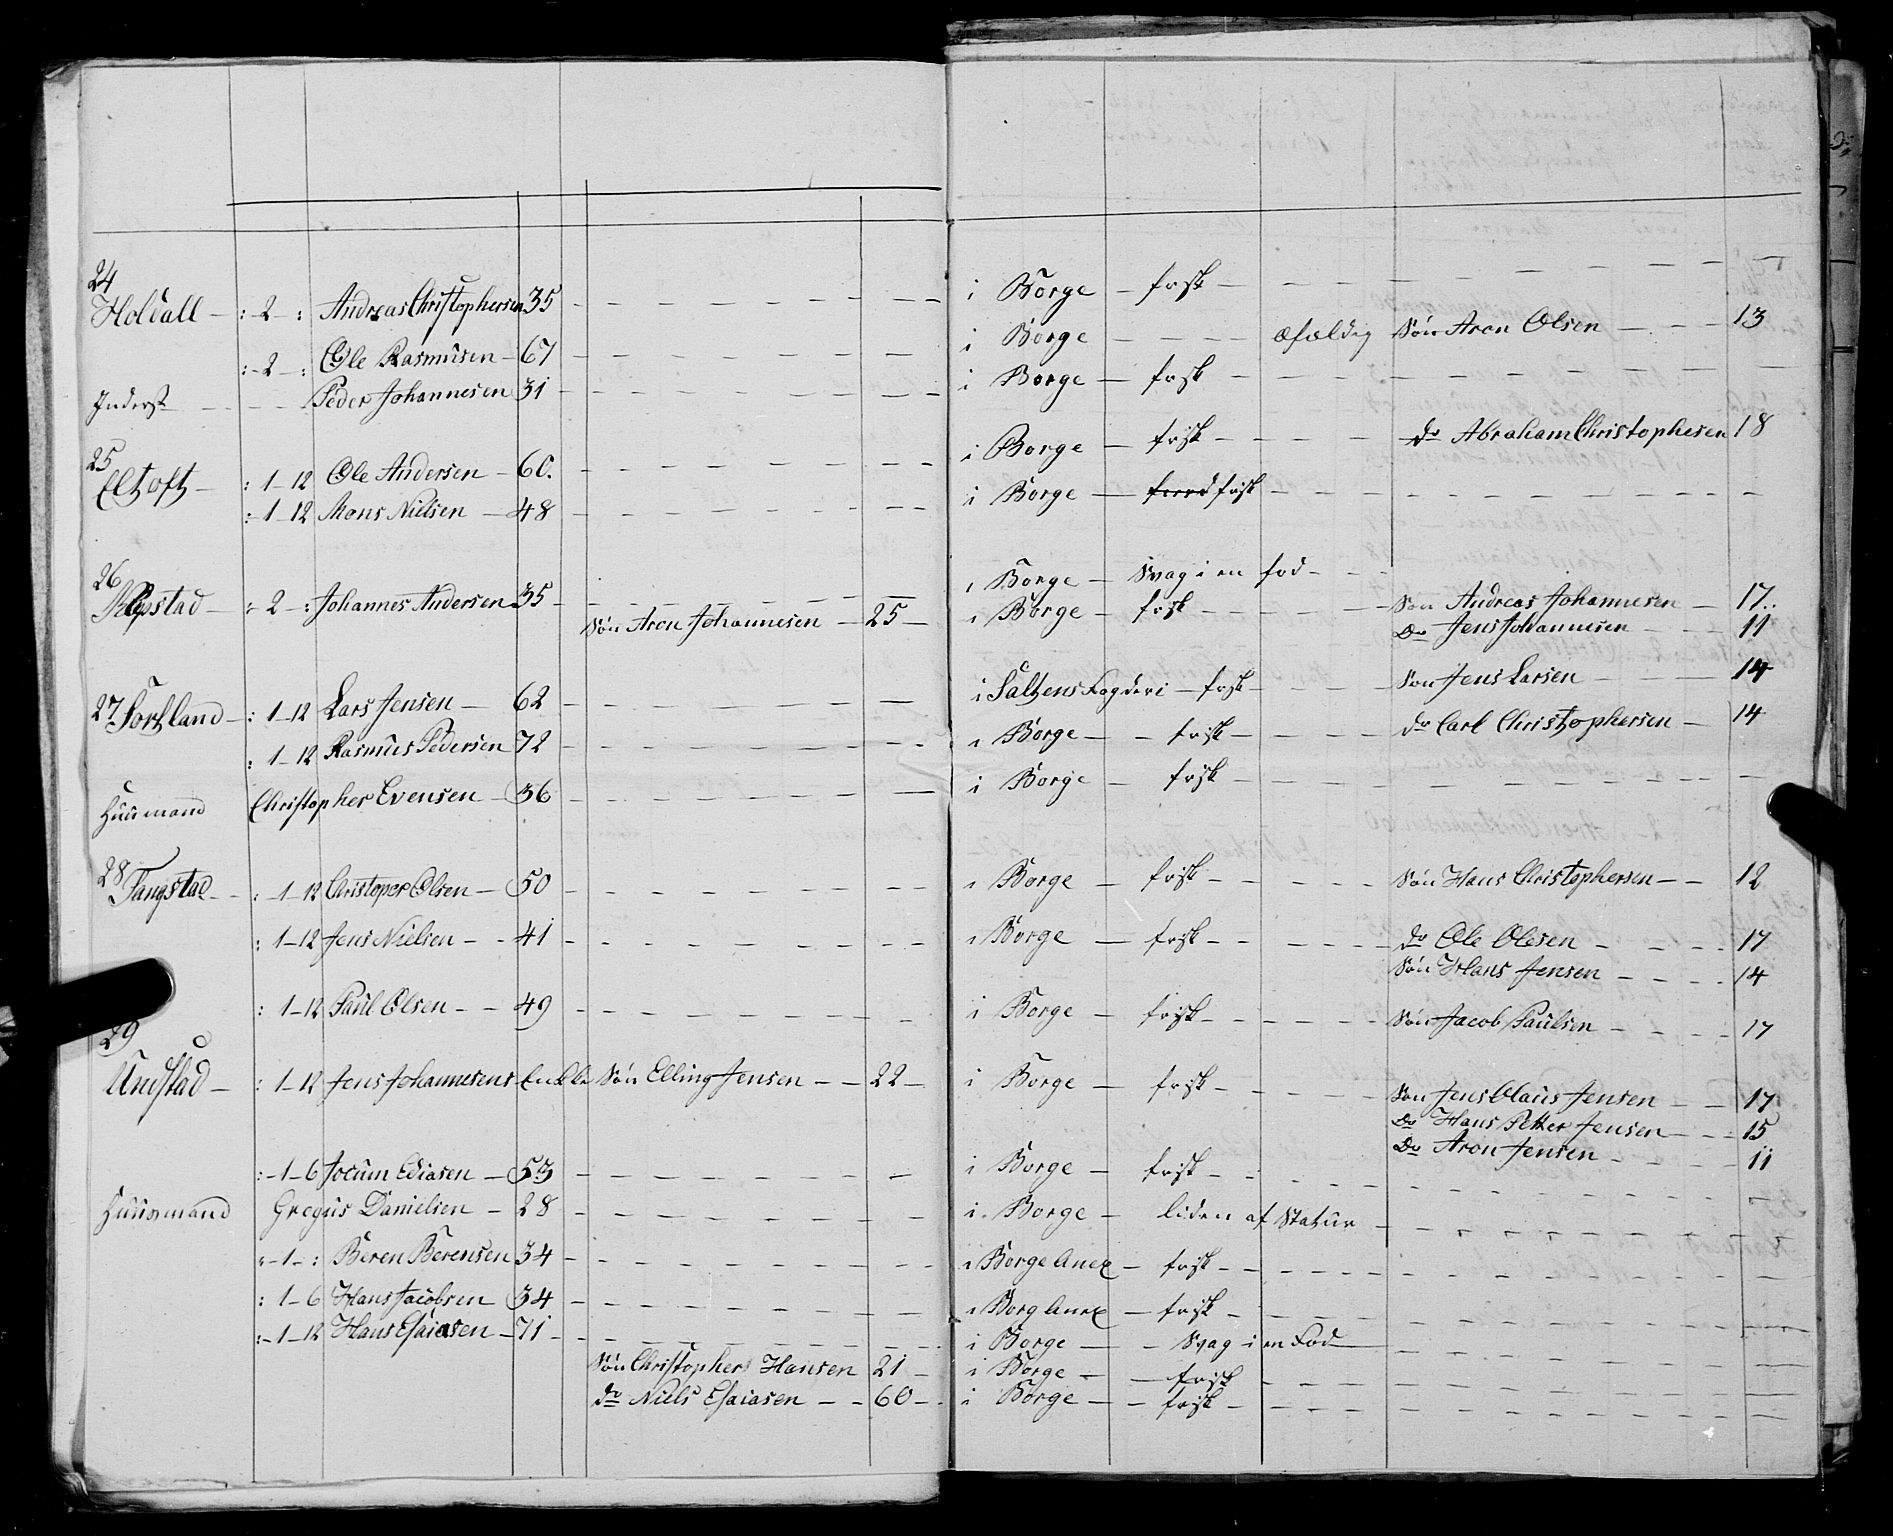 24
Holdall – : 2 : Andreas Christophersen 35 – i Borge – frisk –
: 2 : Ole Rasmusen – 67 – i Borge – – æfældig Søn Aron Olsen – 13
Inderst – Peder Johannesen 31 – i Borge – frisk –
25
Eltoft – : 1–12 Ole Andersen – 60. – i Borge – frisk – do Abraham Christophesen 18
: 1–12 Mons Nielsen – 48 – i Borge – frisk –
26
Kepstad – : 2 – : Johannes Andersen 35 – i Borge – Svag i en fod –
Søn Aron Johannesen – 25 – i Borge – frisk – Søn Andreas Johannesen – 17..
Do Jens Johannesen – 11
27 Tortland – : 1–12 Lars Jensen – 62 – i Saltens Fogderi – frisk – Søn Jens Larsen – 14
: 1–12 Rasmus Pedersen 72 – i Borge – frisk – do Carl Christophersen – 14
Huusmand Christopher Evensen – 36 – i Borge – frisk –
28
Tangstad – : 1–12 Christoper Olsen – 50 – i Borge – frisk – Søn Hans Christophersen – 12
: 1–12 Jens Nielsen – 41 – i Borge – frisk – do Ole Olesen – 17
Søn Hans Jensen – 14
: 1–12 Paul Olsen – 49 – i Borge – frisk – Søn Jacob Paulsen – 17
29
Undstad – : 1–12 Jens Johannesens Enkke Søn Elling Jensen – 22 – i Borge – frisk –
Søn Jens Claus Jensen – 17
Do Hans Petter Jensen – 15
Do Aron Jensen – 11
: 1–6 Jocum Ediasen – 53 – i Borge – frisk –
Huusmand Gregus Danielsen – 28 – i Borge – liden af Statur –
: 1 – : Beren Berensen 34 – i Borge Anex – frisk –
: 1–6 Hans Jacobsen 34 – i Borg Anex – frisk –
: 1–12 Hans Esaiasen – 71 – i Borge – Svag i en Fod
Søn Christopher Hansen 21 – i Borge – frisk –
do Niels Esaiasen – 60 – i Borge – frisk –